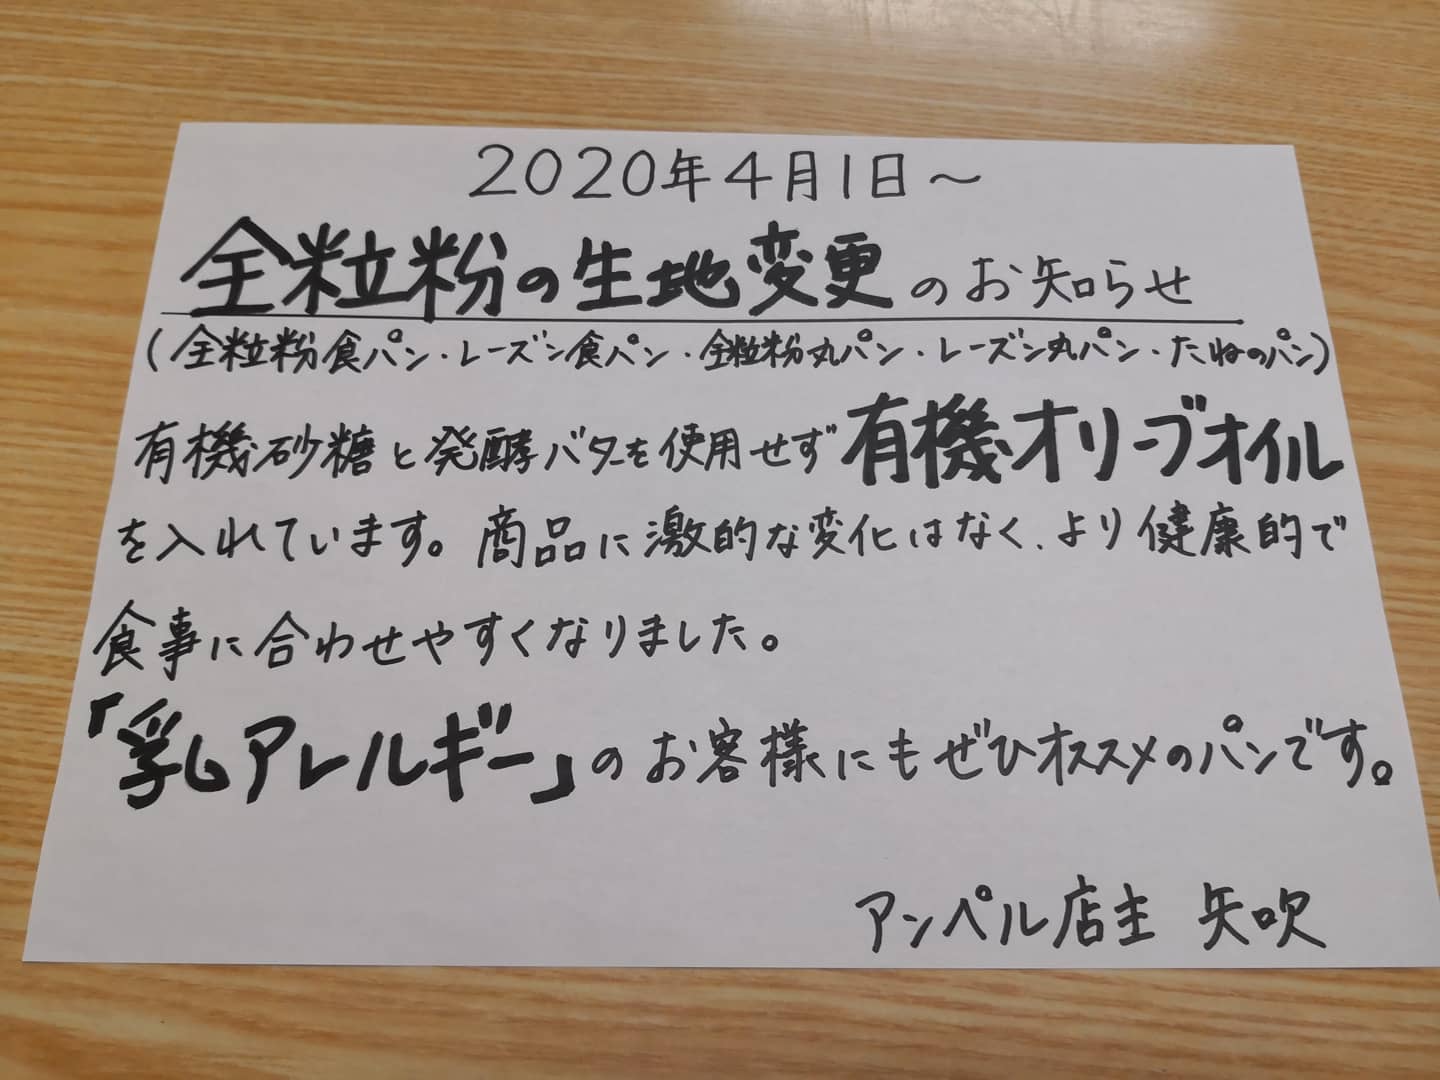 2020年4月1日～
全粒粉の生地変更のお知らせ
(全粒粉食パン・レーズン食パン・全粒粉丸パン・レーズン丸パン・たねのパン)
有機砂糖と発酵バターを使用せず有機オリーブオイル
を入れています。商品に激的な変化はなく、より健康的で
食事に合わせやすくなりました。
「乳アレルギー」のお客様にもぜひオススメのパンです。
アンペル店主 矢吹